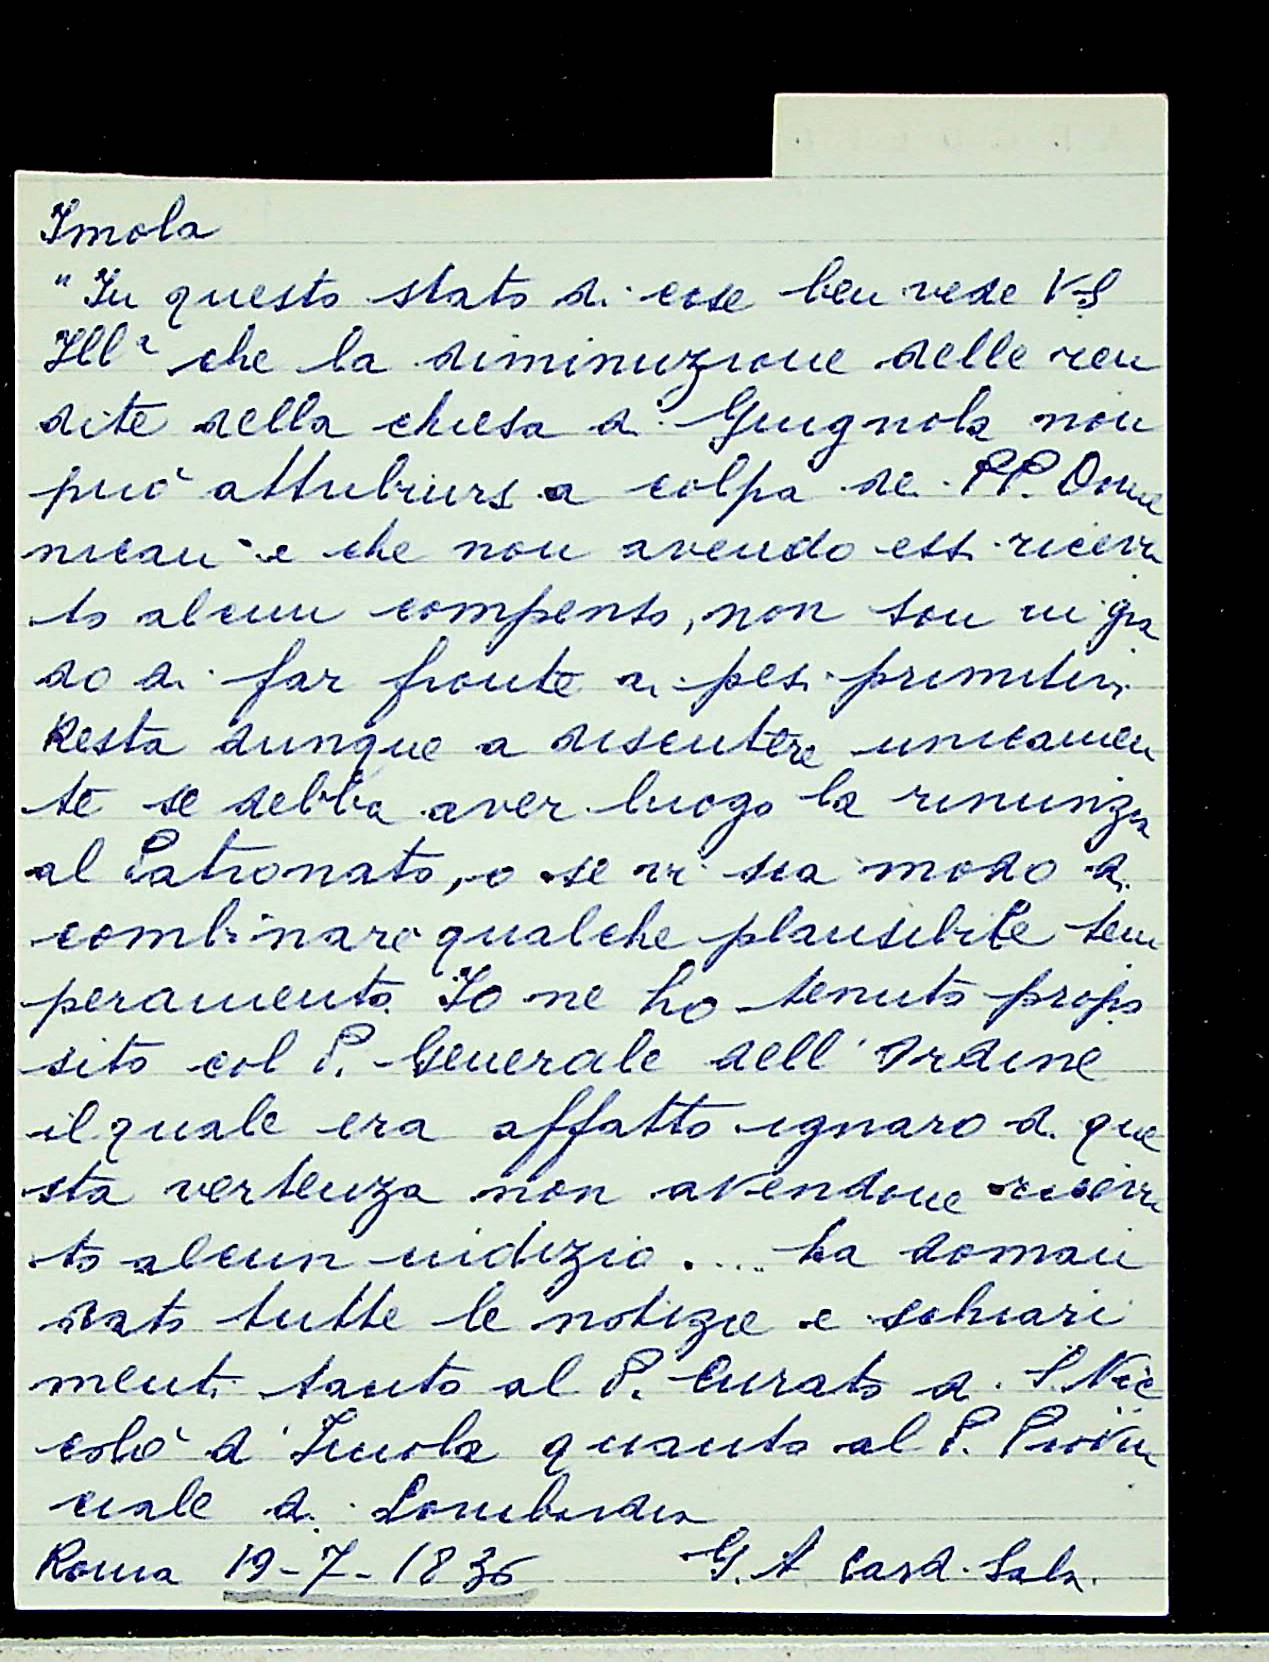 Imola
"In questo stato di cose ben vede V.S
Illª che la diminuzione delle ren
dite della chiesa di Giugnola non
può attribuirsi a colpa dei PP. Dome
nicani e che non avendo essi ricevu
to alcun compenso, non son in gra
do di far fronte ai pesi primitivi
Resta dunque a discutere unicamen
te se debba aver luogo la rinunzia
al Patronato, o se vi sia modo di
combinare qualche plausibile tem
peramento. Io ne ho tenuto propo
sito col P. Generale dell'Ordine
il quale era affatto ignaro di que
sta vertenza non avendone ricevu
to alcun indizio..... ha doman
dato tutte le notizie e schiari
menti tanto al P. Curato di S. Nic
colò d'Imola quanto al P. Provin
ciale di Lombardia
Roma 19-7-1836 G. A Card. Sala.